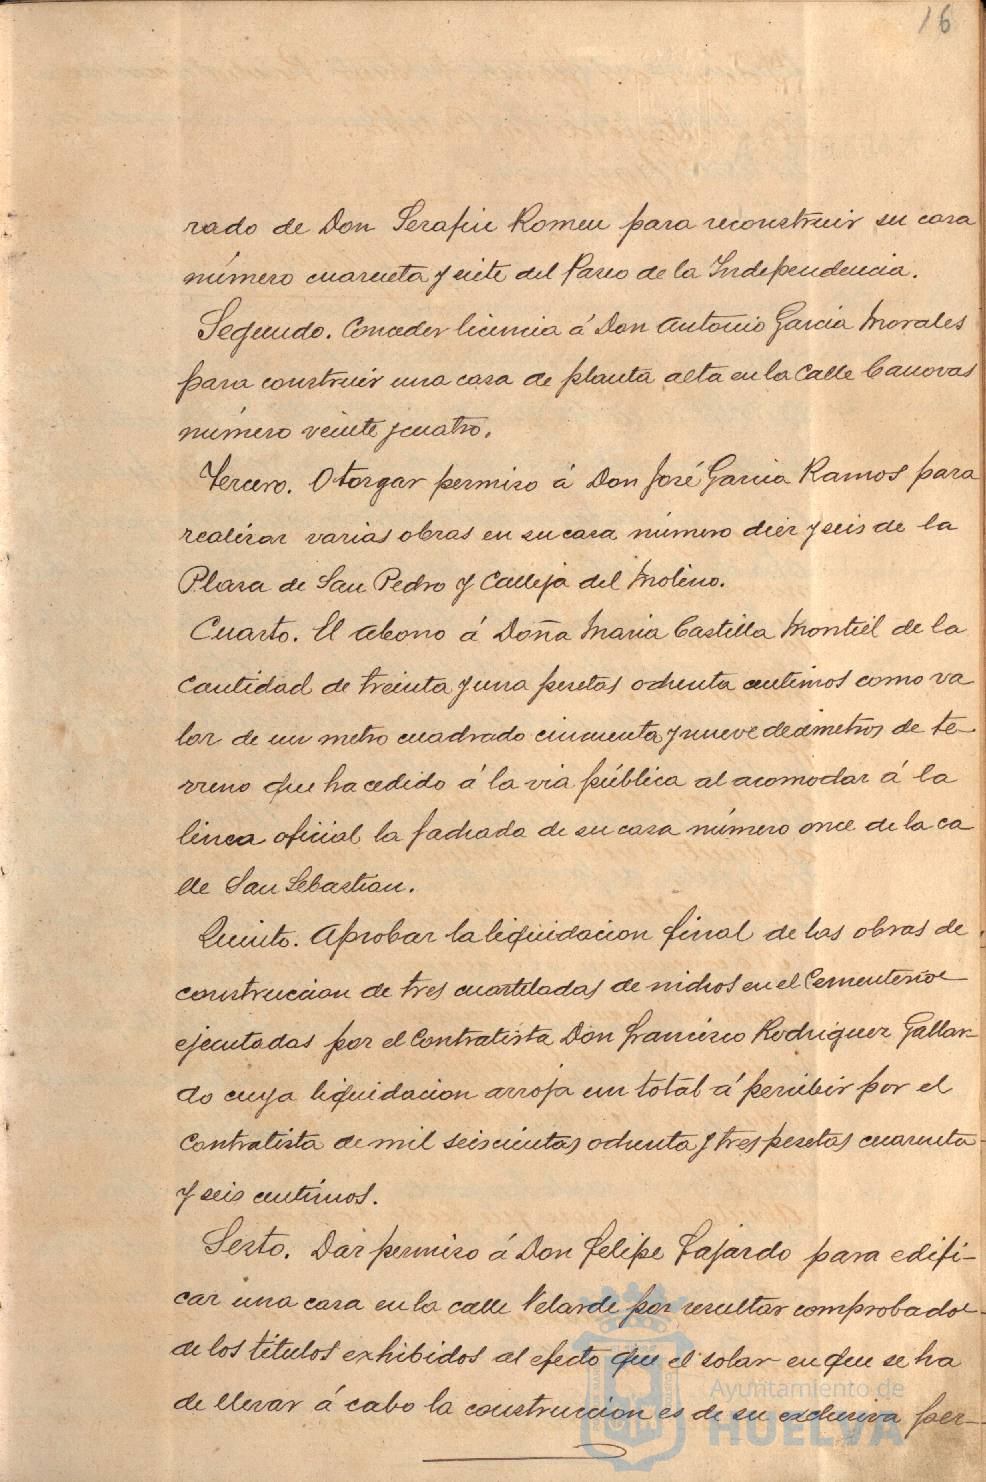 16
rado de Don Serafin Romeu para reconstruir su casa
número cuarenta y siete del Paseo de la Independencia.
Segundo. Conceder licencia á Don Antonio Garcia Morales
para construir una casa de planta alta en la Calle Canovas
número veinte y cuatro.
Tercero. Otorgar permiso á Don José Garcia Ramos para
realizar varias obras en su casa número diez y seis de la
Plaza de San Pedro y Calleja del Molino.
Cuarto. El abono á Doña Maria Castilla Montiel de la
cantidad de treinta y una pesetas ochenta centimos como va
lor de un metro cuadrado cincuenta y nueve decimetros de te-
rreno que ha cedido á la via pública al acomodar á la
linea oficial la fachada de su casa número once de la ca
lle San Sebastian.
Quinto. Aprobar la liquidacion final de las obras de
construccion de tres cuarteladas de nichos en el Cementerio
ejecutadas por el Contratista Don Francisco Rodriguez Gallar-
do cuya liquidacion arroja un total á percibir por el
Contratista de mil seiscientas ochenta y tres pesetas cuarenta
y seis centimos.
Sesto. Dar permiso á Don Felipe Fajardo para edifi-
car una casa en la calle Velarde por resultar comprobado
de los titulos exhibidos al efecto que el solar en que se ha
de llevar á cabo la construccion es de su exclusiva per-
Ayuntamiento de
HUELVA